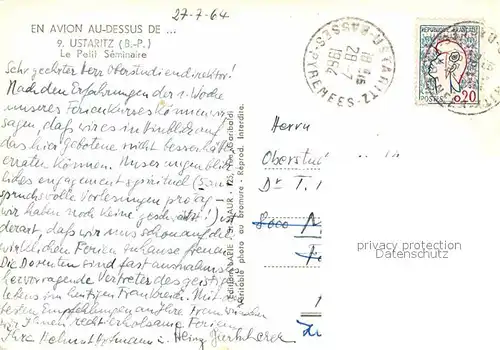 27-7-64
EN AVION AU-DESSUS DE ...
9. USTARITZ (B.-P.)
Le Petit Séminaire
Sehr geehrter Herr Oberstudiendirektor!
Nach den Erfahrungen der 1. Woche
unseres Ferienkurses können wir
sagen, daß wir es im Hinblick auf
das hier gebotene nicht besser hätten
erraten können. Unser augenblick
liches engagement spirituel (5 an
spruchsvolle Vorlesungen pro Tag -
wir haben noch keine geschwänzt!) ist
derart, daß wir uns schon auf die
wirklichen Ferien zuhause freuen.
Die Dozenten sind fast ausnahmslos
hervorragende Vertreter des geistigen
Lebens im heutigen Frankreich. Mit
besten Empfehlungen an Ihre Frau
wir Ihnen recht erholsame Ferien
Ihre Helmut Hofmann u. Heinz
Véritable photo au bromure - Réprod. Interdite.
USTARITZ
BASSES-PYRENEES
18 H 45
28-7
1964
REPUBLIQUE FRANCAISE
POSTES 0,20
Herrn
Oberstu
Dr T.
8000
privacy protection
Datenschutz